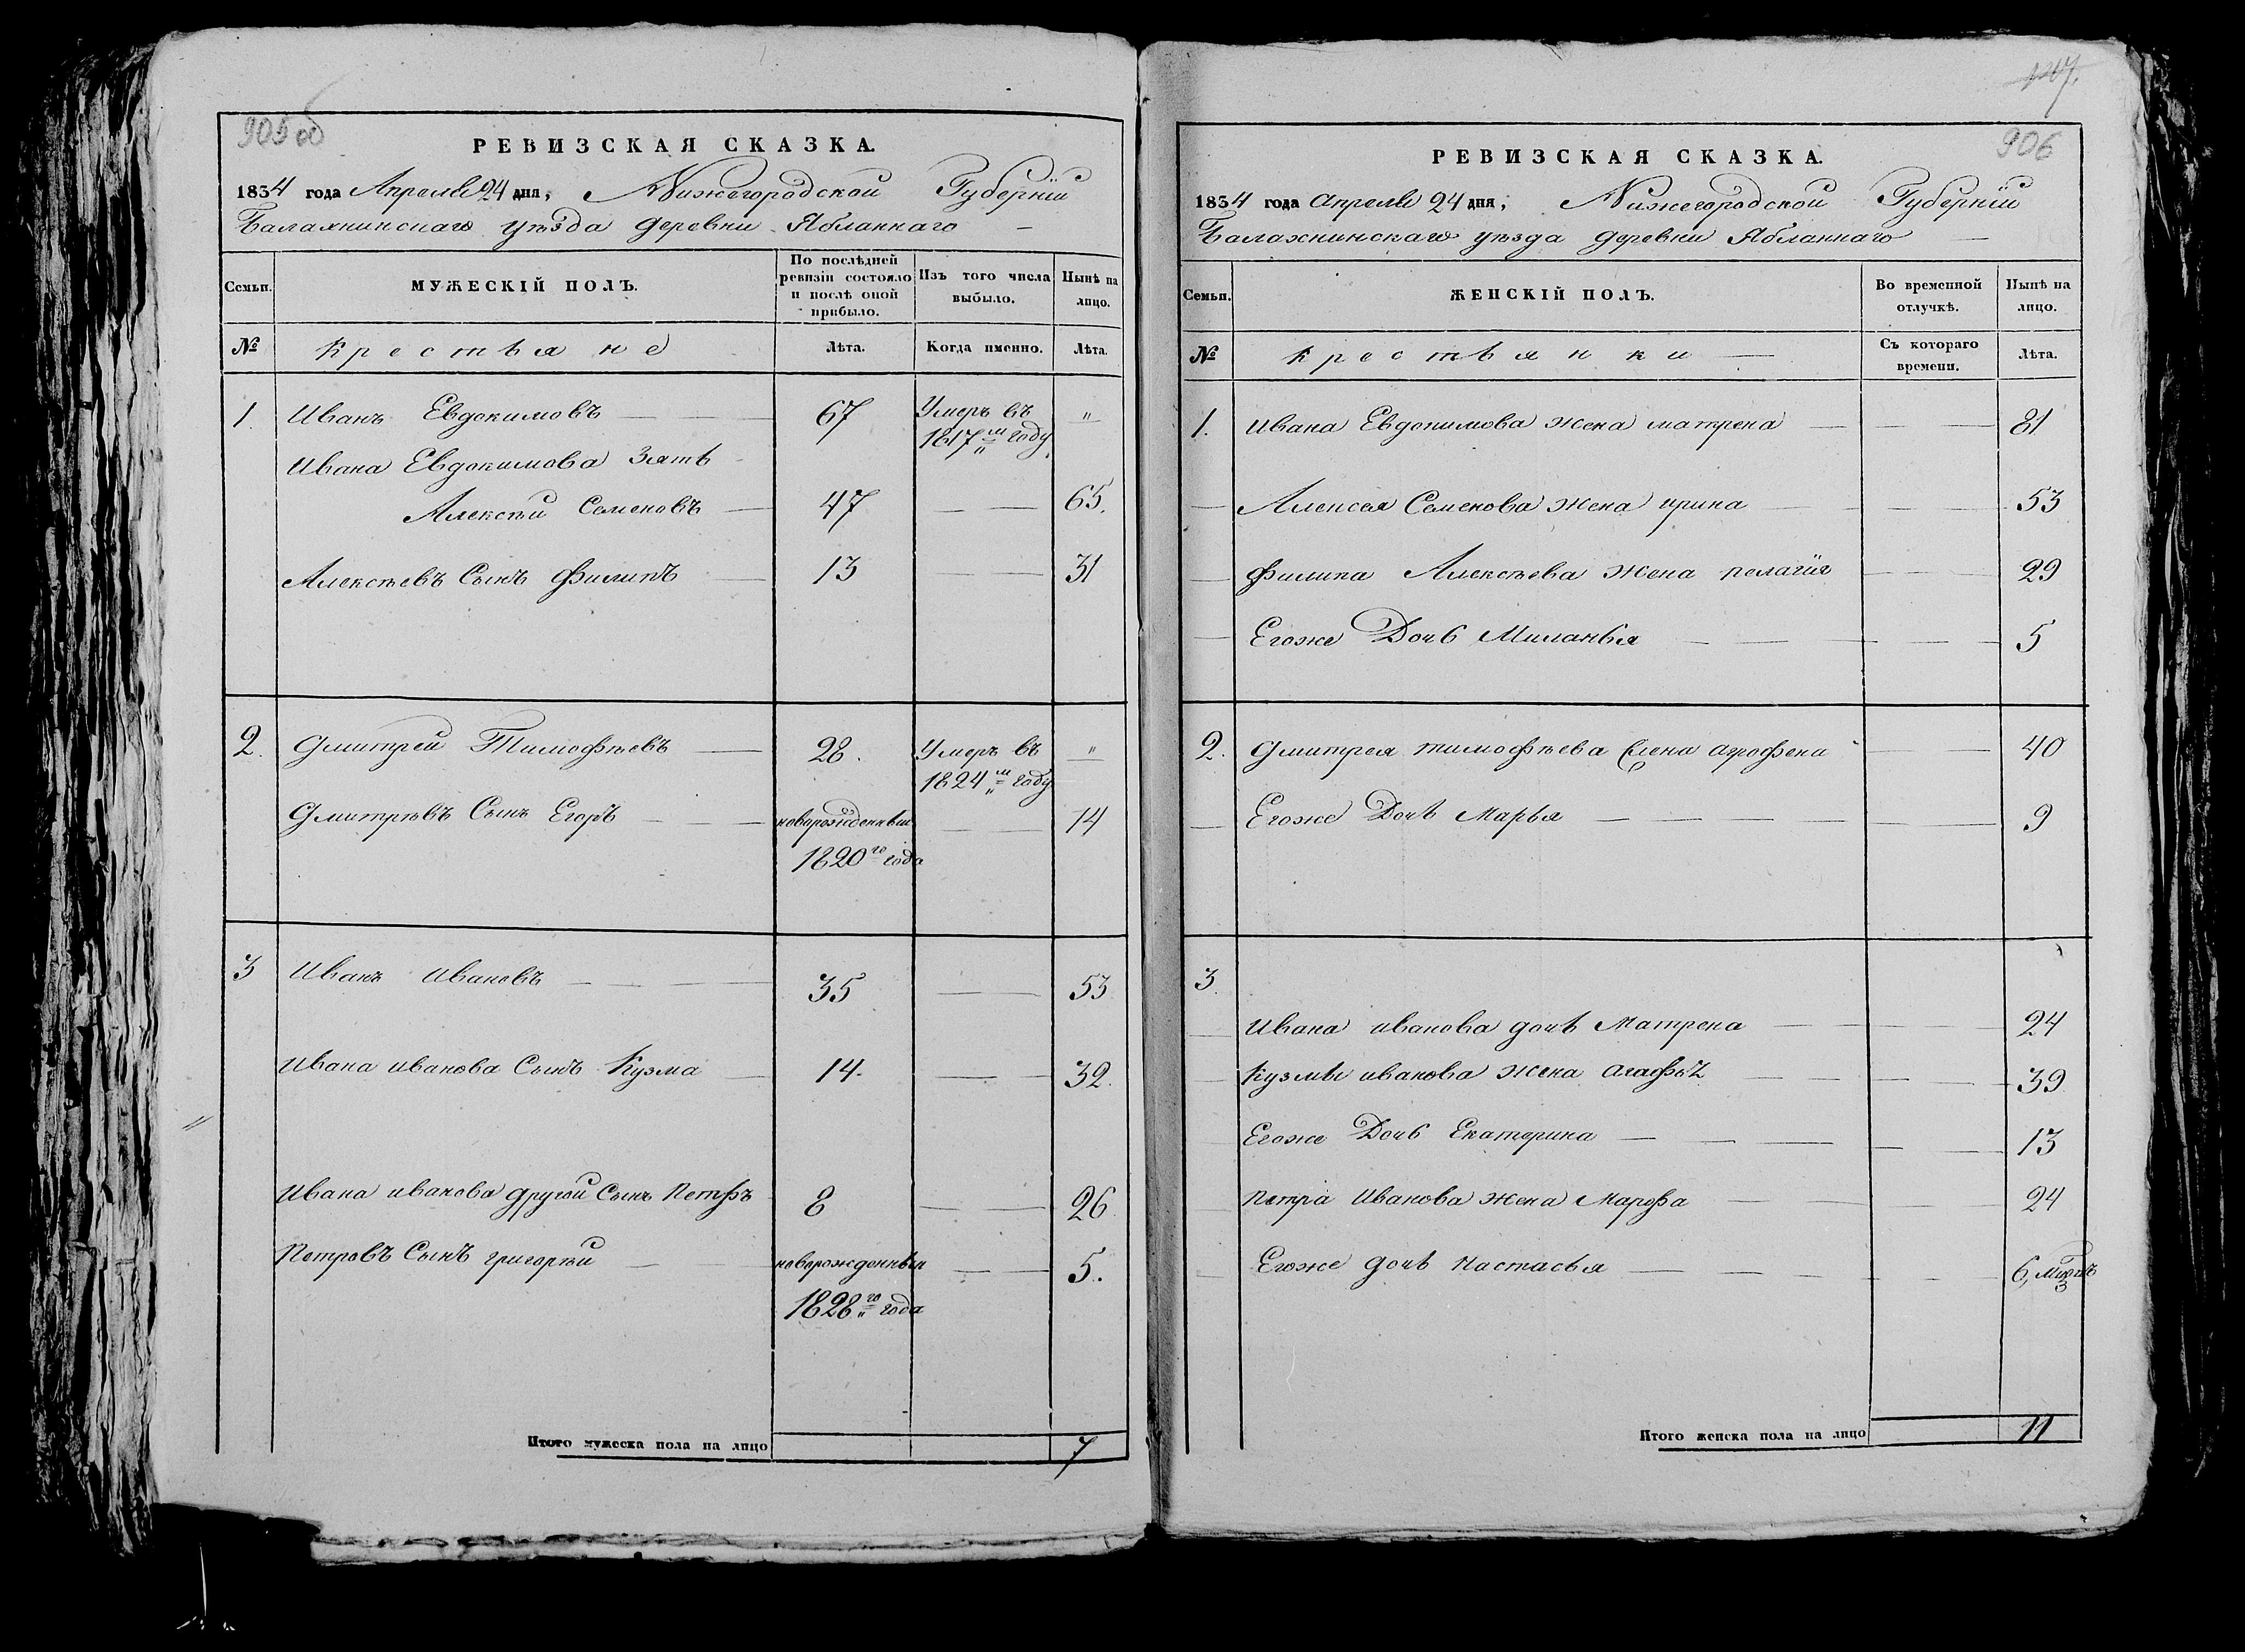 905 об
РЕВИЗСКАЯ СКАЗКА.
1834 года Апреля 24 дня, Нижегородской Губерніи
Балахнинскаго уѣзда деревни Абланнаго
Семьи.
МУЖЕСКІЙ ПОЛЪ.
По послѣдней ревизіи состояло и послѣ оной прибыло.
Изъ того числа выбыло.
Нынѣ на лицо.
№
Крестьяне
Лѣта.
Когда именно.
Лѣта.
1. Иванъ Евдокимовъ 67 Умеръ въ "
1817м году
Ивана Евдокимова Зять
Алексѣй Семеновъ 47 65.
Алексѣевъ Сынъ Филипъ 13 31
2. Дмитрей Тимофѣевъ 28. Умеръ въ "
1824м году
Дмитрѣвъ Сынъ Егоръ новорожденный 14
1820го года
3 Иванъ Ивановъ 35 53
Ивана иванова Сынъ Кузма 14. 32.
Ивана иванова другой Сынъ Петръ 8 26
Петровъ Сынъ григорѣй новорожденный 5.
1828го года
Итого мужеска пола на лицо 7
906
РЕВИЗСКАЯ СКАЗКА.
1834 года апреля 24 дня, Нижегородской Губерніи
Балахнинскаго уѣзда деревни Абланнаго
Семьи.
ЖЕНСКІЙ ПОЛЪ.
Во временной отлучкѣ.
Нынѣ на лицо.
№
Крестьянки
Съ котораго времени.
Лѣта.
1. Ивана Евдокимова жена матрена 81
Алексея Семенова жена ирина 53
Филипа Алексѣева жена пелагія 29
Егоже Дочь Миланья 5
2. Дмитрея тимофѣева агрофена 40
Егоже Дочь Марья 9
3.
Ивана иванова дочь Матрена 24
Кузмы иванова жена 39
Егоже Дочь Екатерина 13
Петра Иванова жена Марфа 24
Егоже дочь Настасья 6,
Итого женска пола на лицо 11